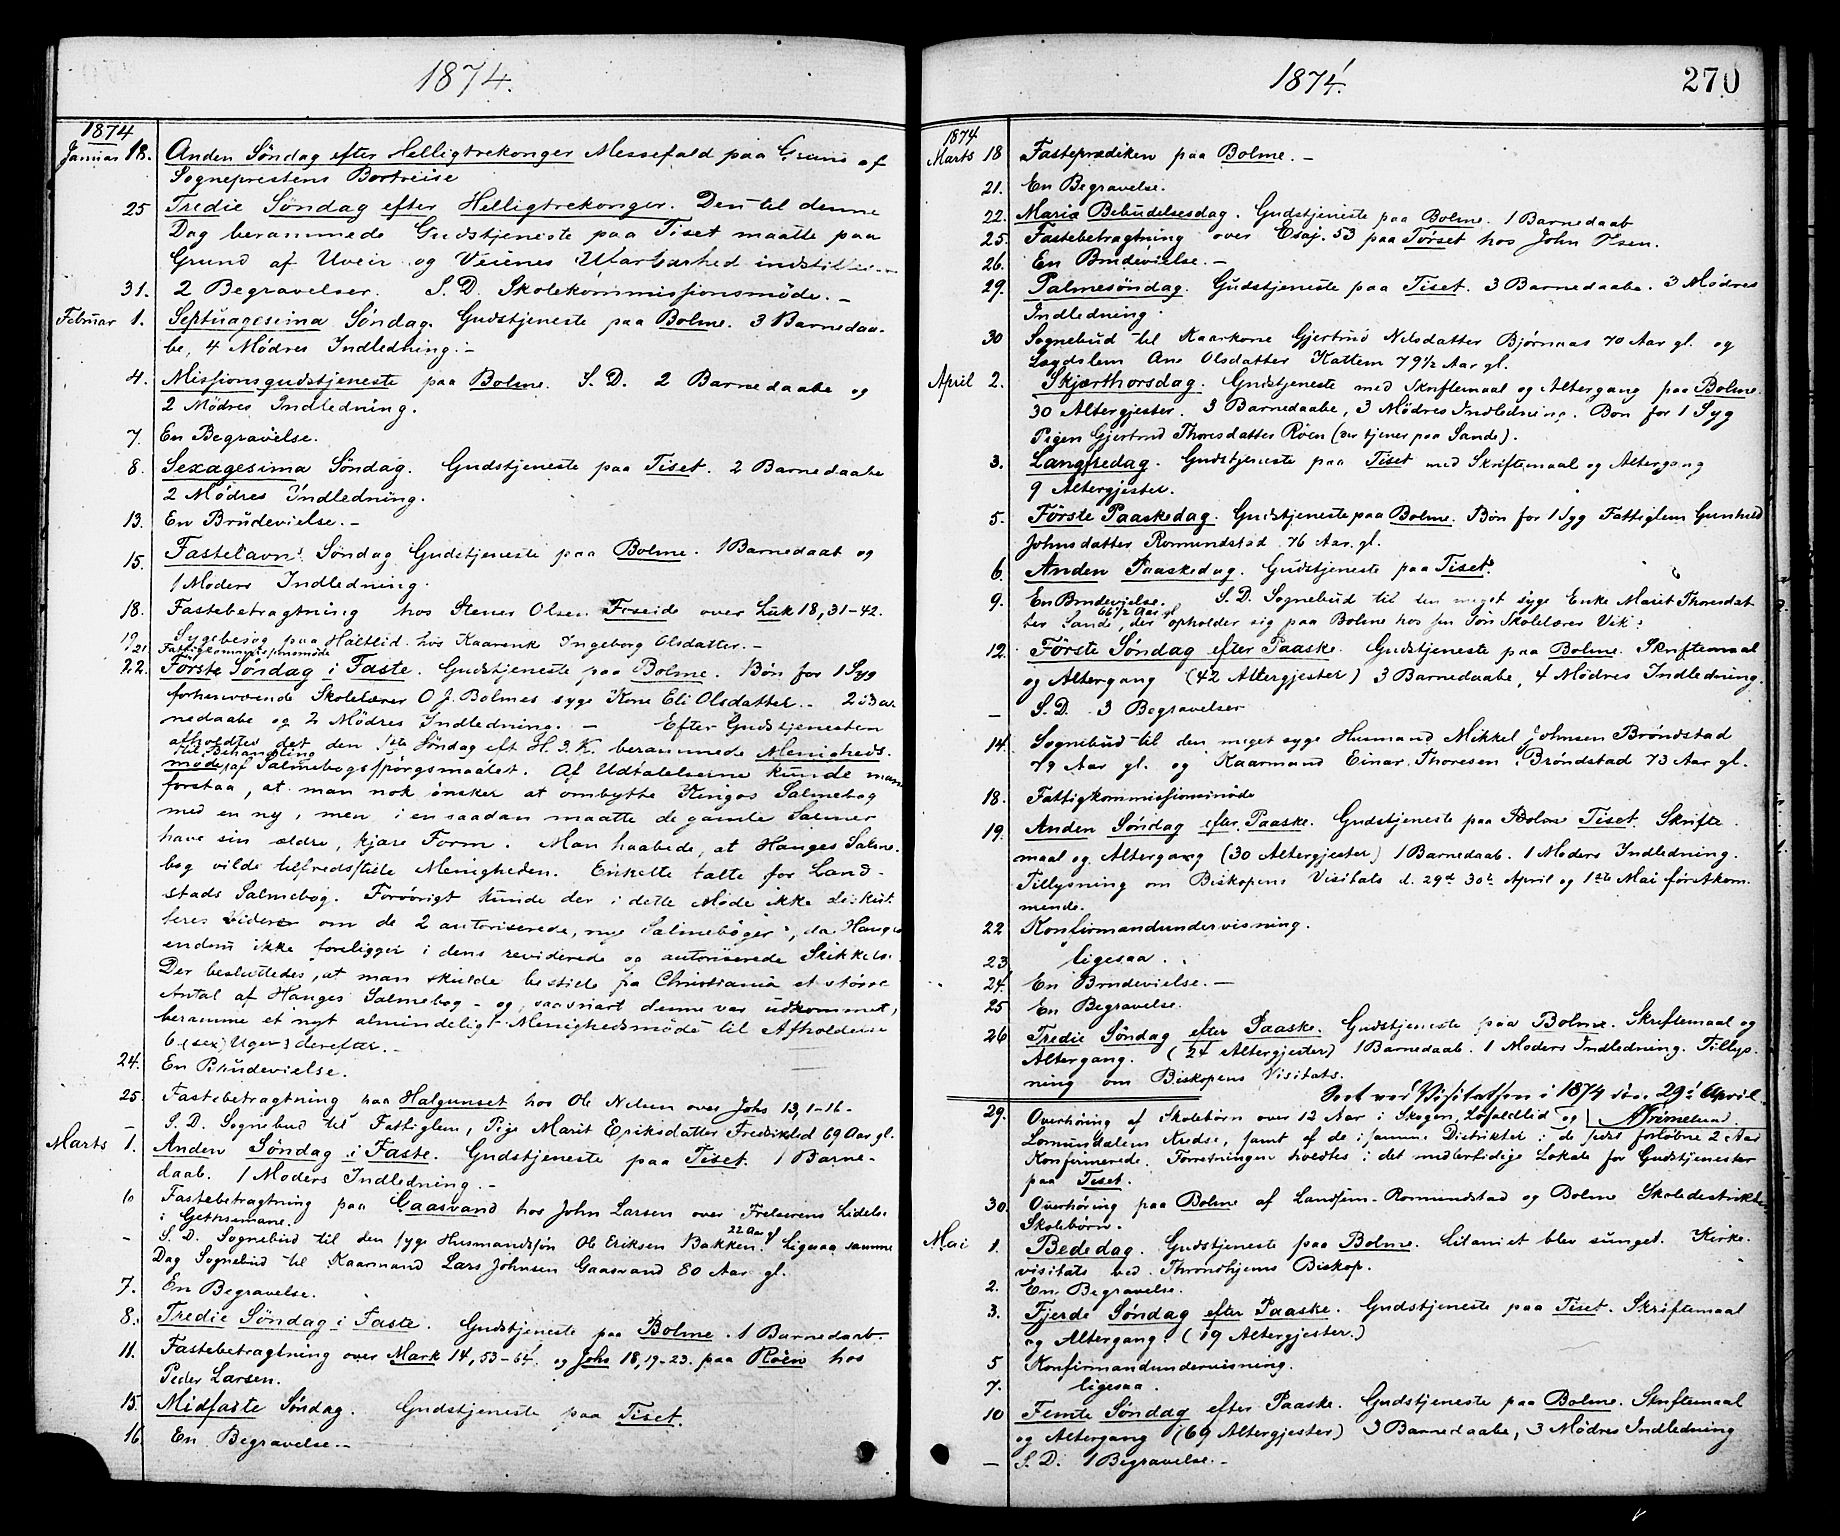 1874.
1874
Januar 18. Anden Søndag efter Helligtrekonger Messefald paa Grund af
Sogneprestens Bortreise
25 Tredie Søndag efter Helligtrekonger. Den til denne
Dag berammede Gudstjeneste paa Tiset maatte paa
Grund af Uveir og Veienes Ufarbarhed indstilles.
31. 2 Begravelser. S. D. Skolekommissionsmøde. –
Februar 1. Septuagesima Søndag. Gudstjeneste paa Bolme. 3 Barnedaa-
be, 4 Mødres Indledning. –
4. Missionsgudstjeneste paa Bolme. S. D. 2 Barnedaabe og
2 Mødres Indledning.
7. En Begravelse.
8. Sexagesima Søndag. Gudstjeneste paa Tiset. 2 Barnedaabe
2 Mødres Indledning.
13. En Brudevielse. –
15. Fastelavns Søndag Gudstjeneste paa Bolme. 1 Barnedaab og
1 Moders Indledning.
18. Fastebetragtning hos Stener Olsen Foseide over Luk 18, 31–42.
19. Sygebesøg paa Haltlid hos Kaarenk Ingeborg Olsdatter. –
21 Fattigkommissionsmøde
22. Første Søndag i Faste. Gudstjeneste paa Bolme. Bøn for 1 Syg
forhenværende Skolelærer O J. Bolmes syge Kone Eli Olsdatter. – 2 Bar
nedaabe og 2 Mødres Indledning. – Efter Gudstjenesten
afholdtes det den 1ste Søndag eft H. 3. K. berammede Menigheds-
til Behandling
møde af Salmebogsspørgsmaalet. Af Udtalelserne kunde man
forstaa, at man nok ønsker at ombytte Kingos Salmebog
med en ny, men i en saadan maatte de gamle Salmer
have sin ældre, kjære Form. Man haabede, at Hauges Salme-
bog vilde tilfredsstille Menigheden. Enkelte talte for Land-
stads Salmebog. Forøvrigt kunde der i dette Møde ikke diskut
teres videre om de 2 autoriserede, nye Salmebøger, da Hauges
endnu ikke foreligger i dens reviderede og autoriserede Skikkelse.
Der besluttedes, at man skulde bestille fra Christiania et større
Antal af Hauges Salmebog – og, saasnart denne var udkommet,
beramme et nyt almindeligt Menighedsmøde til Afholdelse
6 (sex) Uger derefter. –
24. En Brudevielse.
25. Fastebetragtning paa Halgunset hos Ole Nilsen over Johs 13, 1–16.
– S. D. Sognebud til Fattiglem, Pige Marit Eriksdatter Fredriklid 69 Aar gl.
Marts 1. Anden Søndag i Faste. Gudstjeneste paa Tiset. 1 Barne-
daab. 1 Moders Indledning. –
Fastebetragtning paa Gaasvand hos John Larsen over Frelserens Lidelse
i Gethsemane.
– S. D. Sognebud til den syge Husmandssøn Ole Eriksen Bakken 22 Aar gl. Ligesaa samme
Dag Sognebud til Kaarmand Lars Johnsen Gaasvand 80 Aar gl.
7. En Begravelse.
8. Tredie Søndag i Faste. Gudstjeneste paa Bolme. 1 Barnedaab.
11. Fastebetragtning over Mark 14, 53–64. og Johs 18, 19–23. paa Røen hos
Peder Larsen.
15. Midfaste Søndag. Gudstjeneste paa Tiset.
16 En Begravelse. –
1874.
270
1874
Marts 18 Fasteprædiken paa Bolme. –
21. En Begravelse.
22. Mariæ Bebudelsesdag. Gudstjeneste paa Bolme. 1 Barnedaab
25. Fastebetragtning over Esaj. 53 paa Tørset hos John Olsen.
26. En Brudevielse. –
29. Palmesøndag. Gudstjeneste paa Tiset. 3 Barnedaabe. 3 Mødres
Indledning.
30 Sognebud til Kaarkone Gjertrud Nilsdatter Bjørnaas 70 Aar gl. og
Lægdslem Ane Olsdatter Kattem 79½ Aar gl.
April 2. Skjærthorsdag. Gudstjeneste med Skriftemaal og Altergang paa Bolme.
30 Altergjester. 3 Barnedaabe, 3 Mødres Indledning. Bøn for 1 Syg
Pigen Gjertrud Thoresdatter Røen (der tjener paa Sande).
3. Langfredag. Gudstjeneste paa Tiset med Skriftemaal og Altergang
9 Altergjester.
5. Første Paaskedag. Gudstjeneste paa Bolme. Bøn for 1 Syg Fattiglem Gunhild
Johnsdatter Romundstad 76 Aar gl.
6. Anden Paaskedag. Gudstjeneste paa Tiset.
9. En Brudevielse. S. D. Sognebud til den meget syge Enke Marit Thorsdat
ter Sande, 66½ Aar gl der opholder sig paa Bolme hos sin Søn Skolelærer Vik.
12. Første Søndag efter Paaske. Gudstjeneste paa Bolme. Skriftemaal
og Altergang (42 Altergjester) 3 Barnedaabe, 4 Mødres Indledning.
– S. D. 3 Begravelser
14. Sognebud til den meget syge Husmand Mikkel Johnsen Brøndstad
79 Aar gl. og Kaarmand Einar Thoresen Brøndstad 73 Aar gl.
18. Fattigkommissionsmøde
19. Anden Søndag efter Paaske. Gudstjeneste paa Bolme Tiset. Skrifte-
maal og Altergang (30 Altergjester) 1 Barnedaab. 1 Moders Indledning.
Tillysning om Biskopens Visitats d. 29de 30te April og 1ste Mai førstkom-
mende.
22 Konfirmandundervisning.
23 ligesaa.
24. En Brudevielse. –
25 En Begravelse.
26 Tredie Søndag efter Paaske. Gudstjeneste paa Bolme. Skriftemaal og
Altergang. (24 Altergjester) 1 Barnedaab. 1 Moders Indledning. Tillys-
ning om Biskopens Visitats.
Seet ved Visitatsen i 1874 den 29de April.
29. Overhøring af Skolebørn over 12 Aar i Skogen, Løfaldlid og
Lomundalens Kredse, samt af de i samme Distrikter i de sidst forløbne 2 Aar
Konfirmerede. Forretningen holdtes i det midlertidige Lokale for Gudstjenester
paa Tiset.
30. Overhøring paa Bolme af Landsem-Romundstad og Bolme Skoledistrikters
Skolebørn.
Mai 1. Bededag. Gudstjeneste paa Bolme. Litaniet blev sunget. Kirke-
visitats ved Throndhjems Biskop.
2. En Begravelse.
3. Fjerde Søndag efter Paaske. Gudstjeneste paa Tiset. Skriftemaal
og Altergang. (19 Altergjester.)
5 Konfirmandundervisning.
7. ligesaa.
10 Femte Søndag efter Paaske. Gudstjeneste paa Bolme. Skriftemaal
og Altergang (69 Altergjester) 3 Barnedaabe, 3 Mødres Indledning
– S. D. 1 Begravelse. –